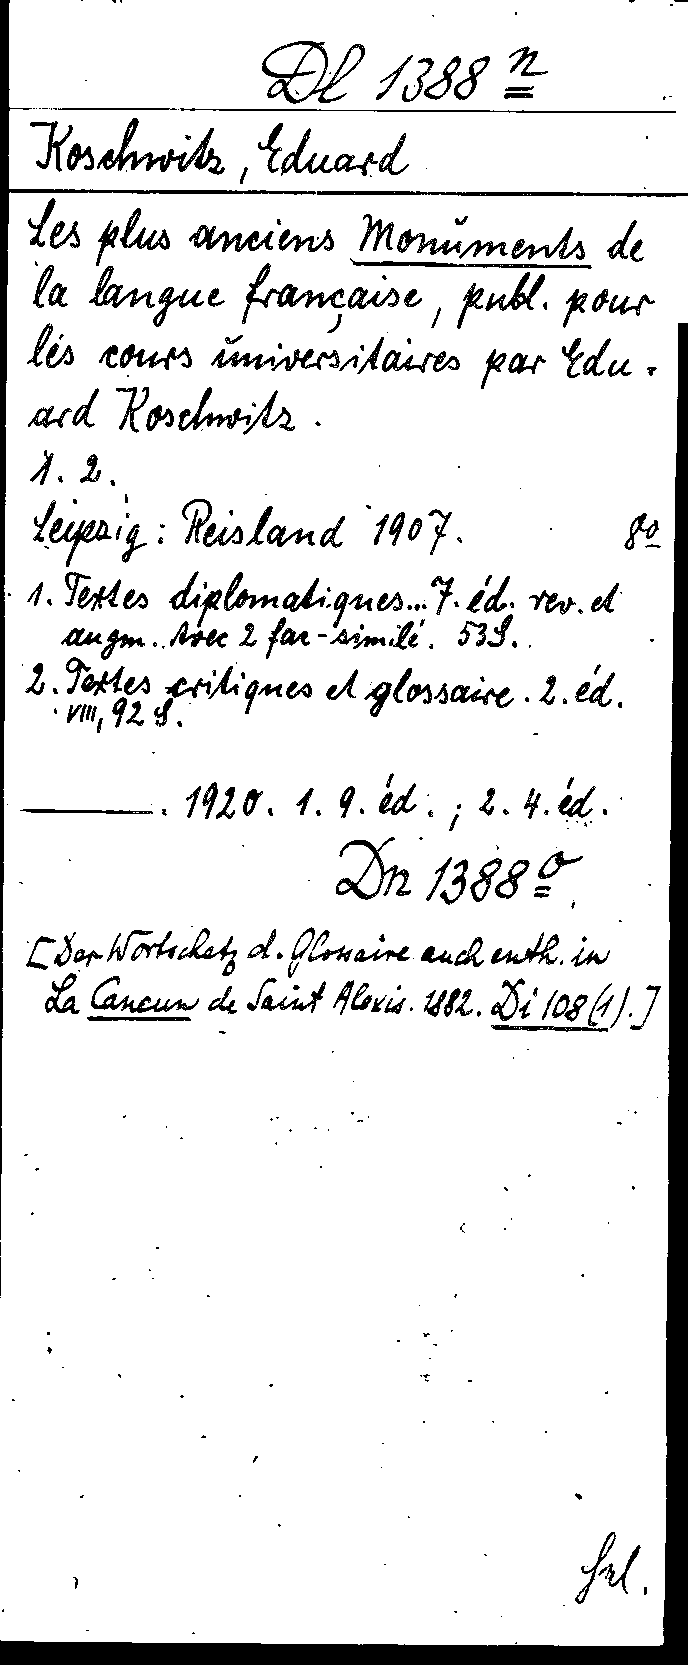 Dl 1388 n
Koschwitz, Eduard
Les plus anciens Monuments de
la langue française, publ. pour
les cours universitaires par Edu-
ard Koschwitz.
1. 2.
Leipzig: Reisland 1907. 8o
1. Textes diplomatiques... 7. éd. rev. et
augm. Avec 2 fac-similé. 53 S.
2. Textes critiques et glossaire. 2. éd.
VIII, 92 S.
———. 1920. 1. 9. éd.; 2. 4. éd.
Dn 1388 o
[Der Wortschatz d. Glossaire auch enth. in
La Cancun de Saint Alexis. 1882. Di 108 (1).]